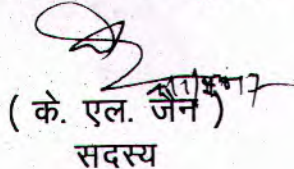 ( के. एल. जैन )
सदस्य